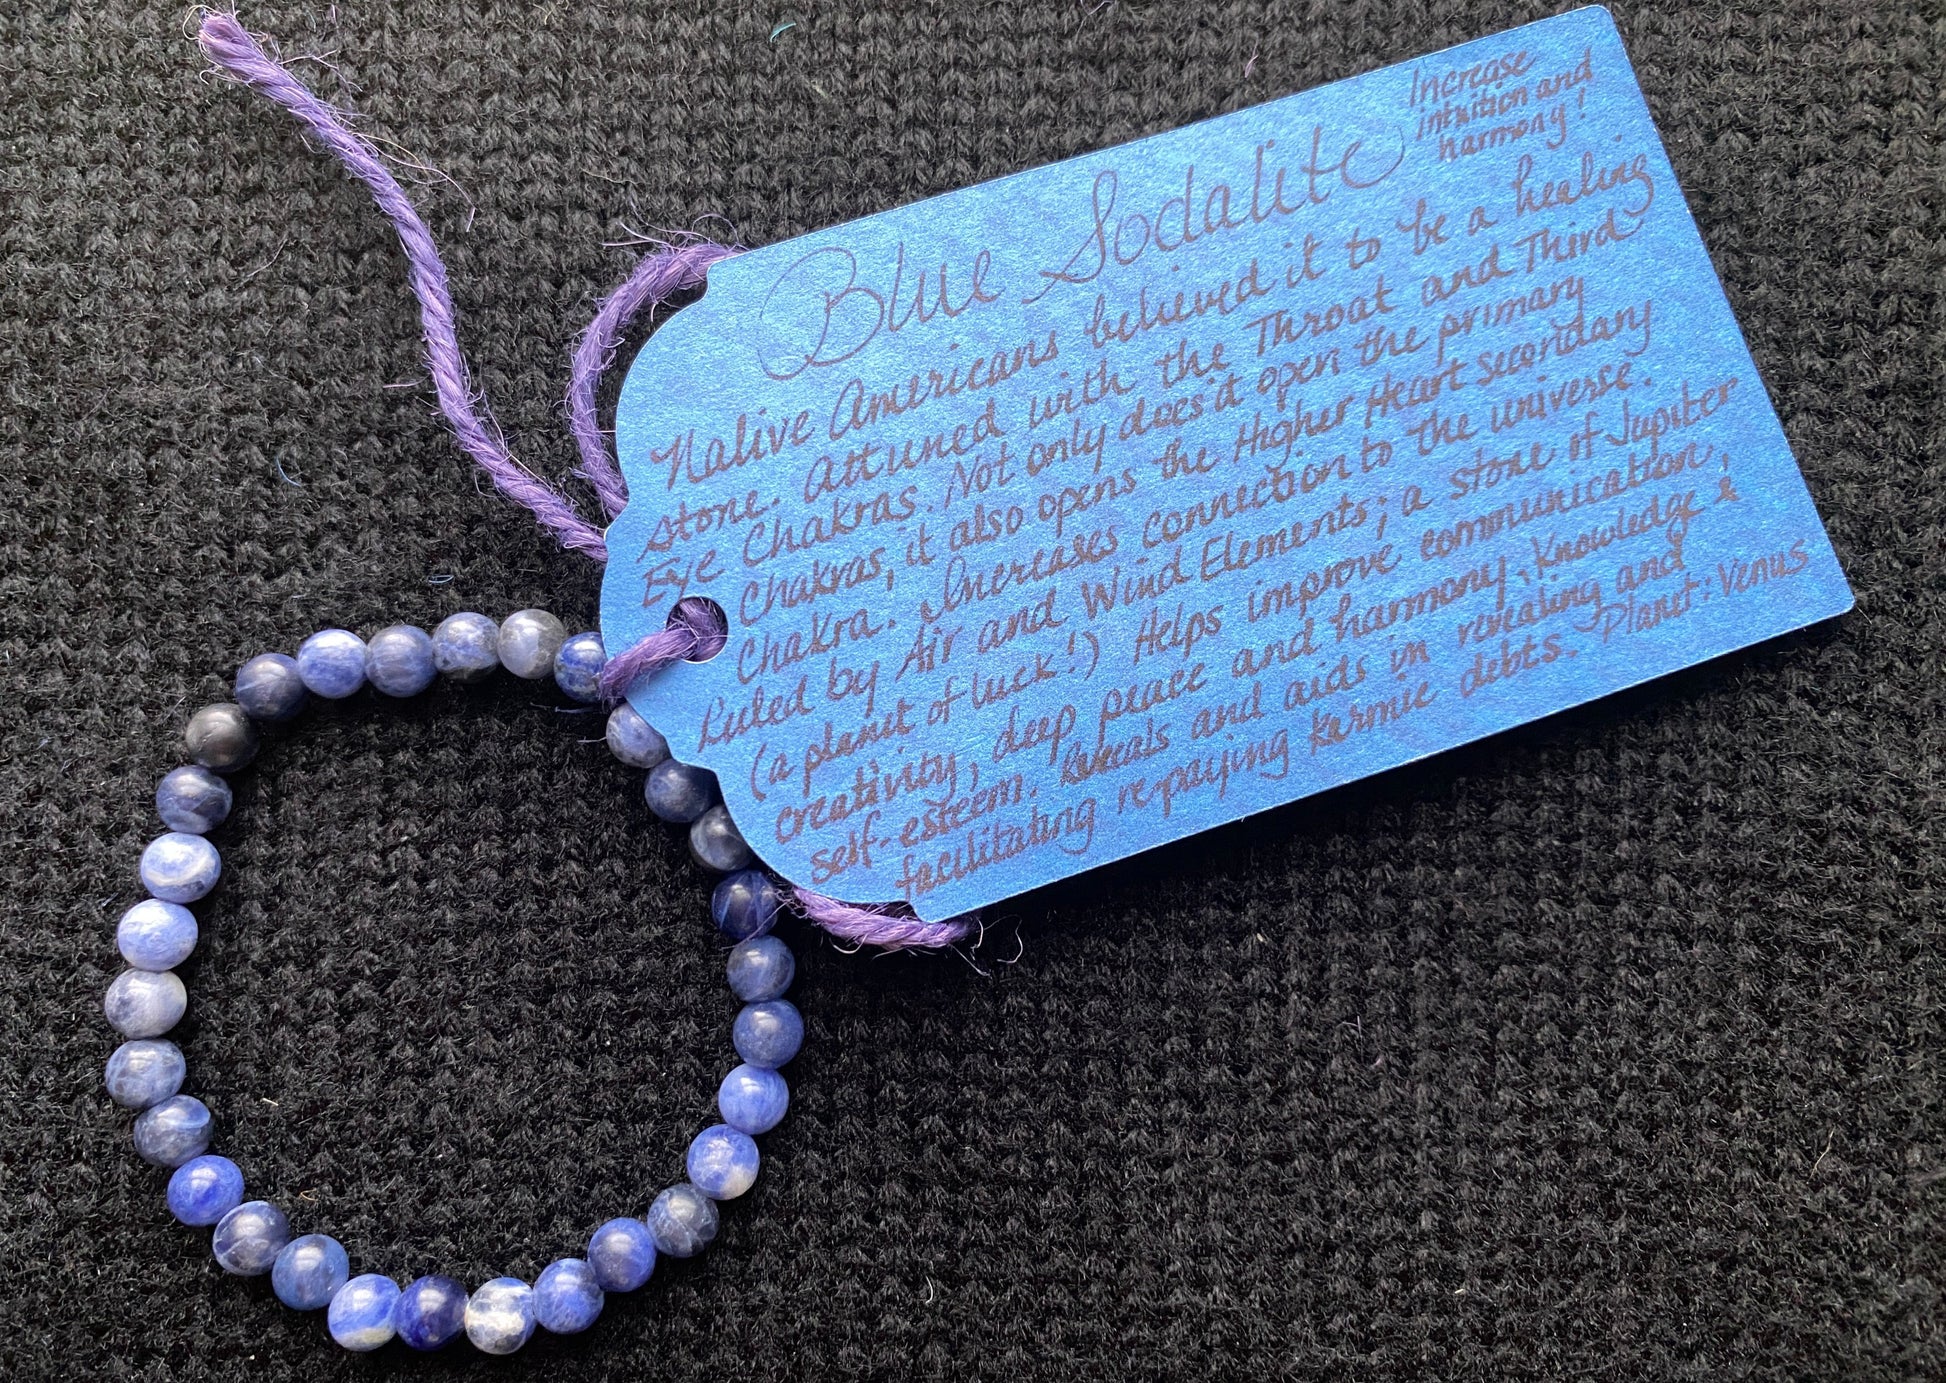 Increase
intuition and
harmony!
Blue Sodalite
Native Americans believed it to be a healing
stone. Attuned with the Throat and Third
Eye Chakras. Not only does it open the primary
Chakras, it also opens the Higher Heart secondary
Chakra. Increases connection to the universe.
Ruled by Air and Wind Elements; a stone of Jupiter
(a planet of luck!) Helps improve communication,
creativity, deep peace and harmony, knowledge &
self-esteem. Reveals and aids in revealing and
facilitating repaying karmic debts. Planet: Venus